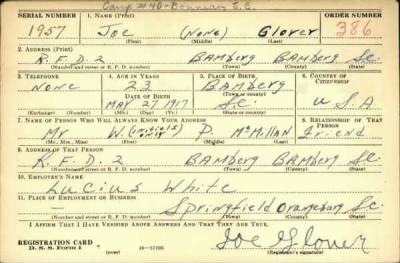 Camp #40-Bonneau S.C.
SERIAL NUMBER 1. NAME (Print) ORDER NUMBER
1957 Joe (None) Glover 386
(First) (Middle) (Last)
2. ADDRESS (Print)
R.F.D. 2 Bamberg Bamberg S.C.
(Number and street or R. F. D. number) (Town) (County) (State)
3. TELEPHONE 4. AGE IN YEARS 5. PLACE OF BIRTH 6. COUNTRY OF CITIZENSHIP
None 23 Bamberg
DATE OF BIRTH (Town or county)
May 27 1917 S.C. U.S.A
(Exchange) (Number) (Mo.) (Day) (Yr.) (State or country)
7. NAME OF PERSON WHO WILL ALWAYS KNOW YOUR ADDRESS 8. RELATIONSHIP OF THAT PERSON
Mr W. (initials only) D. McMillan Friend
(Mr., Mrs., Miss) (First) (Middle) (Last)
9. ADDRESS OF THAT PERSON
R.F.D. 2 Bamberg Bamberg S.C.
(Number and street or R. F. D. number) (Town) (County) (State)
10. EMPLOYER'S NAME
Lucius White
11. PLACE OF EMPLOYMENT OR BUSINESS
— Springfield Orangeburg S.C.
(Number and street or R. F. D. number) (Town) (County) (State)
I AFFIRM THAT I HAVE VERIFIED ABOVE ANSWERS AND THAT THEY ARE TRUE.
REGISTRATION CARD
D. S. S. Form 1 (over) 16-17105 Joe Glover
(Registrant's signature)